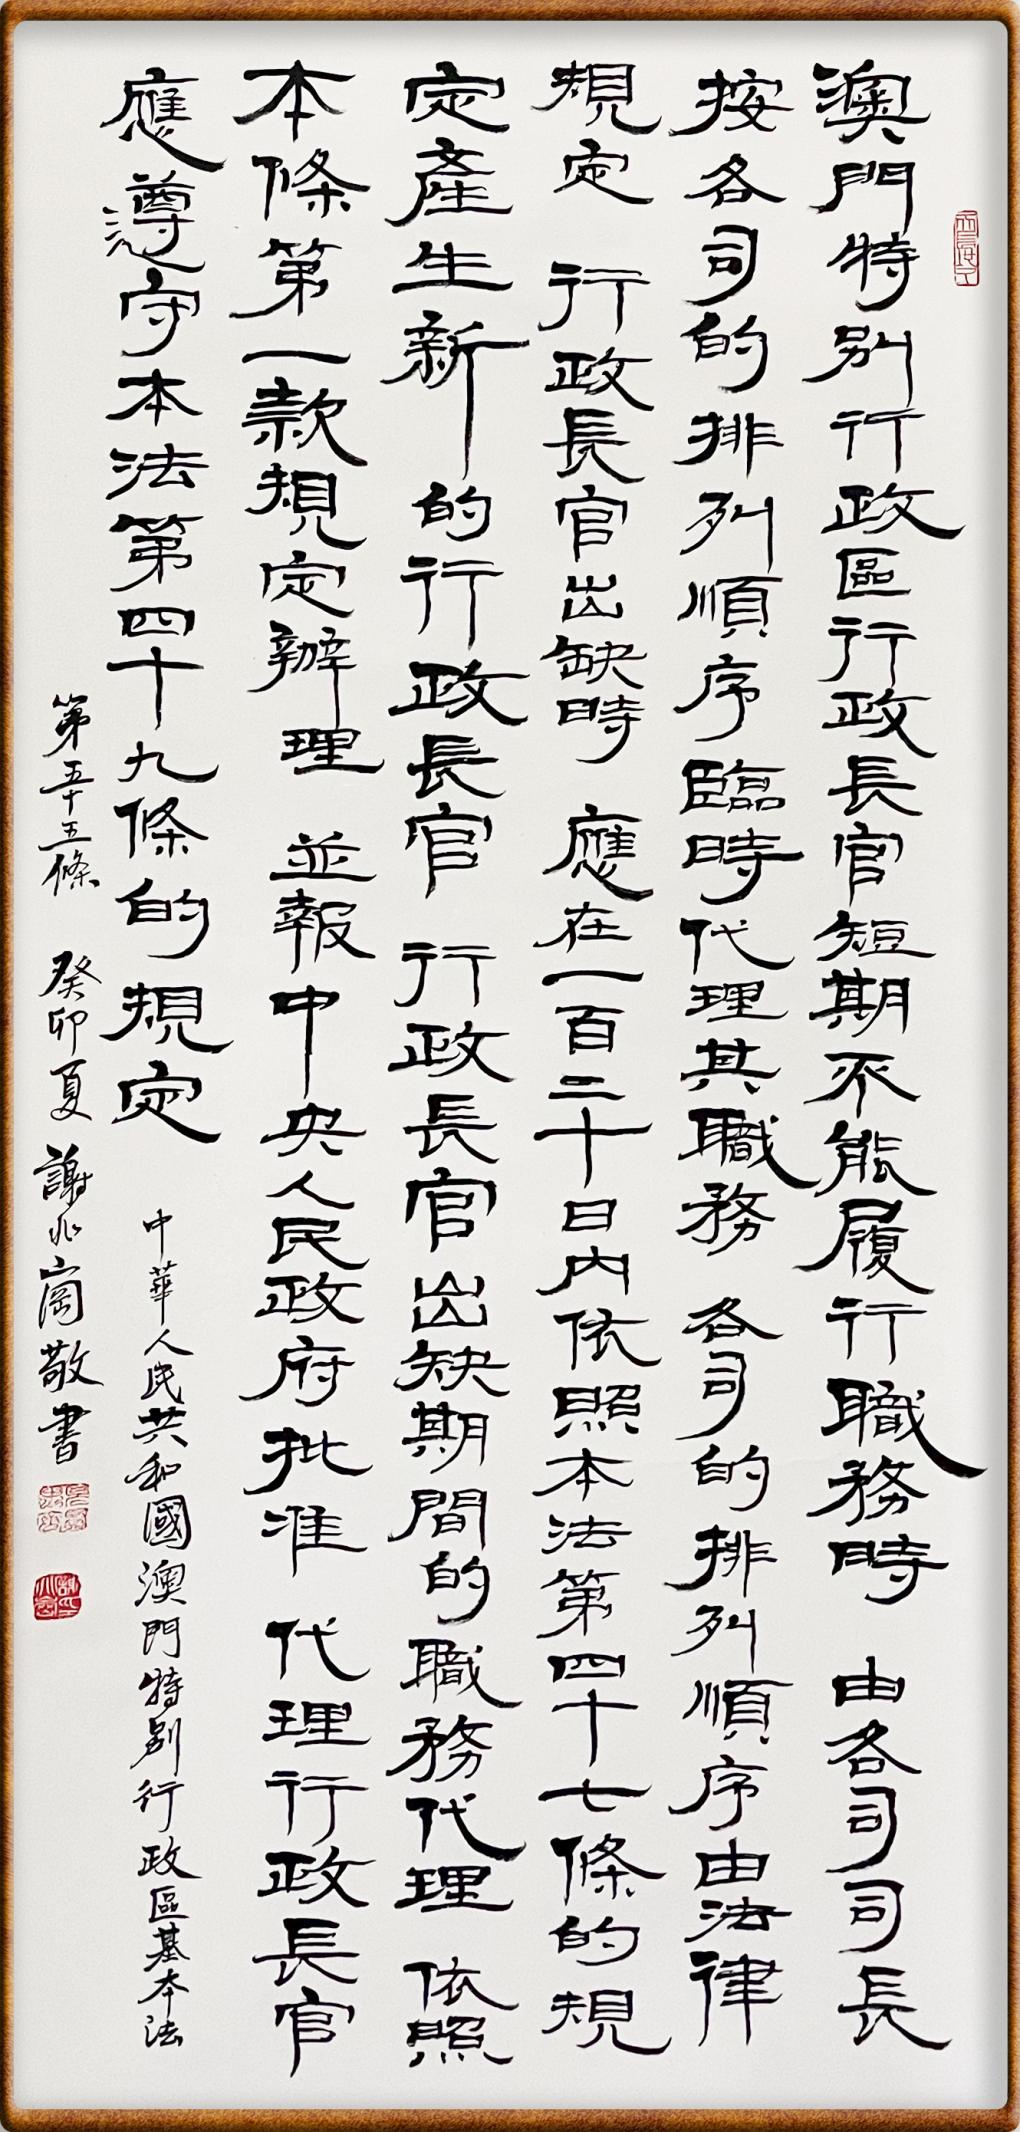 澳門特別行政區行政長官短期不能履行職務時 由各司司長
按各司的排列順序臨時代理其職務 各司的排列順序由法律
規定 行政長官出缺時 應在一百二十日內依照本法第四十七條的規
定產生新的行政長官 行政長官出缺期間的職務代理 依照
本條第一款規定辦理 並報中央人民政府批准 代理行政長官
應遵守本法第四十九條的規定 中華人民共和國澳門特別行政區基本法
第五十五條 癸卯夏 謝兆崗敬書